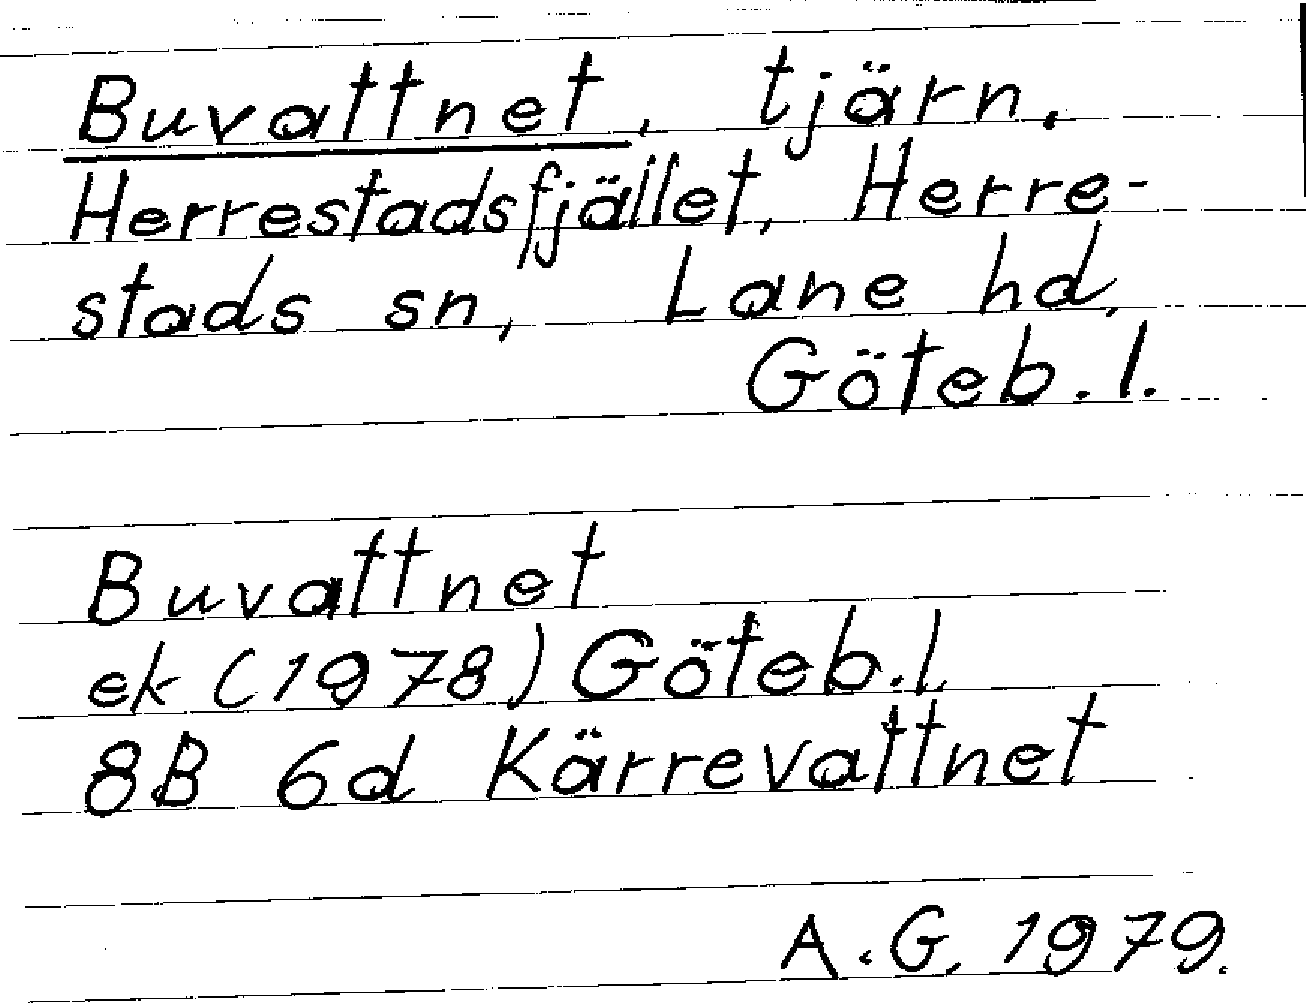 Buvattnet, tjärn.
Herrestadsfjället, Herre-
stads sn, Lane hd,
Göteb. l.
Buvattnet
ek (1978) Göteb. l.
8B 6d Kärrevattnet
A.G. 1979.